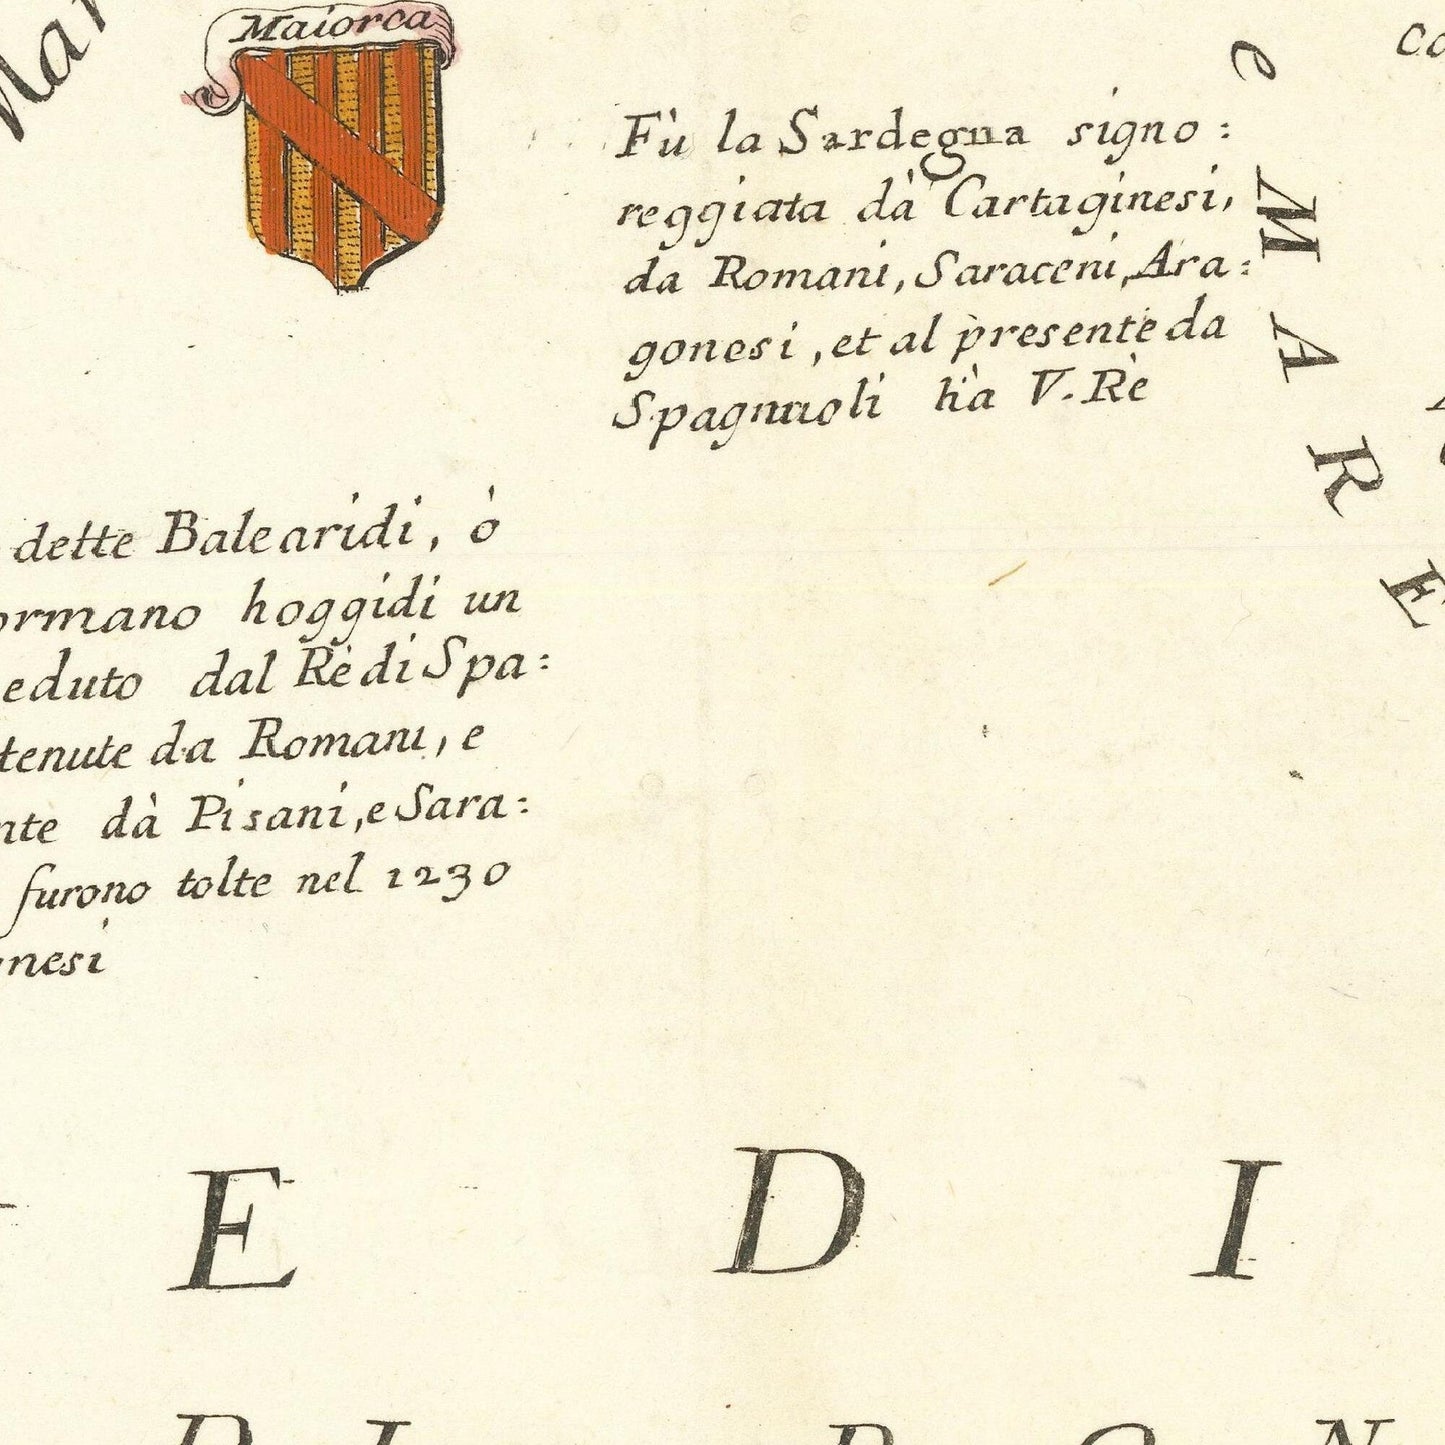 Maiorca
Fù la Sardegna signo:
reggiata dà Cartaginesi,
da Romani, Saraceni, Ara:
gonesi, et al presente da
Spagnuoli hà V. Rè
dette Balearidi, ò
ormano hoggidi un
eduto dal Rè di Spa:
tenute da Romani, e
nte dà Pisani, e Sara:
furono tolte nel 1230
onesi
e
MARE
E D I